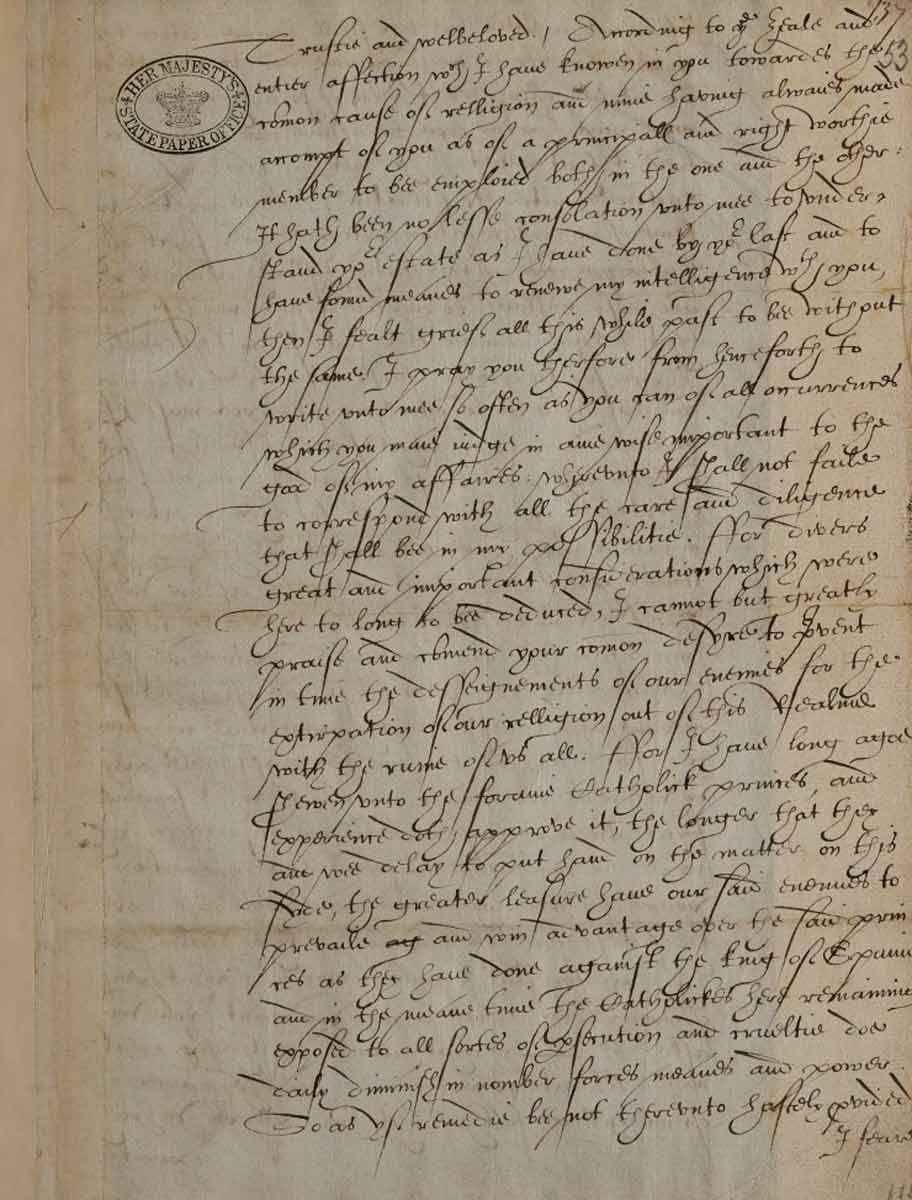 137
53
HER MAJESTY'S STATE PAPER OFFICE
Trustie and welbeloved. According to ye zeale and
entier affection wch I have knowen in you towardes the
comon cause of relligion and mine having alwaies made
accompt of you as of a principall and right worthie
member to bee emploied both in the one and the other:
It hath been no lesse consolation unto mee to under,
stand yor estate as I have done by yor last and to
have found meanes to renewe my intelligence wth you,
then I fealt grief all this while past to bee without
the same. I pray you therfore from henceforth to
write unto mee so often as you can of all occurrences
which you maie iudge in anie wise important to the
good of my affaires, wherunto I shall not faile
to correspond with all the care and diligence
that shall bee in my possibilitie. Ffor divers
great and important considerations which were
here to long to bee deduced, I cannot but greatly
praise and comend your comon desyre to pvent
in time the desseignements of our enemies for the
extirpation of our relligion out of this Realme
with the ruine of us all. Ffor I have long agoe
shewen unto the foraine Catholick princes, and
experience doth approve it, the longer that they
and wee delay to put hand on the matter on this
syde, the greater leasure have our said enemies to
prevaile and win advantage over the said prin
ces as they have done against the king of Spaine
and in the meane time the Catholickes here remaining
exposed to all sortes of psecution and crueltie doe
daily diminish in nomber forces meanes and power.
So as yf remedie bee not therunto hastely pvided
I feare